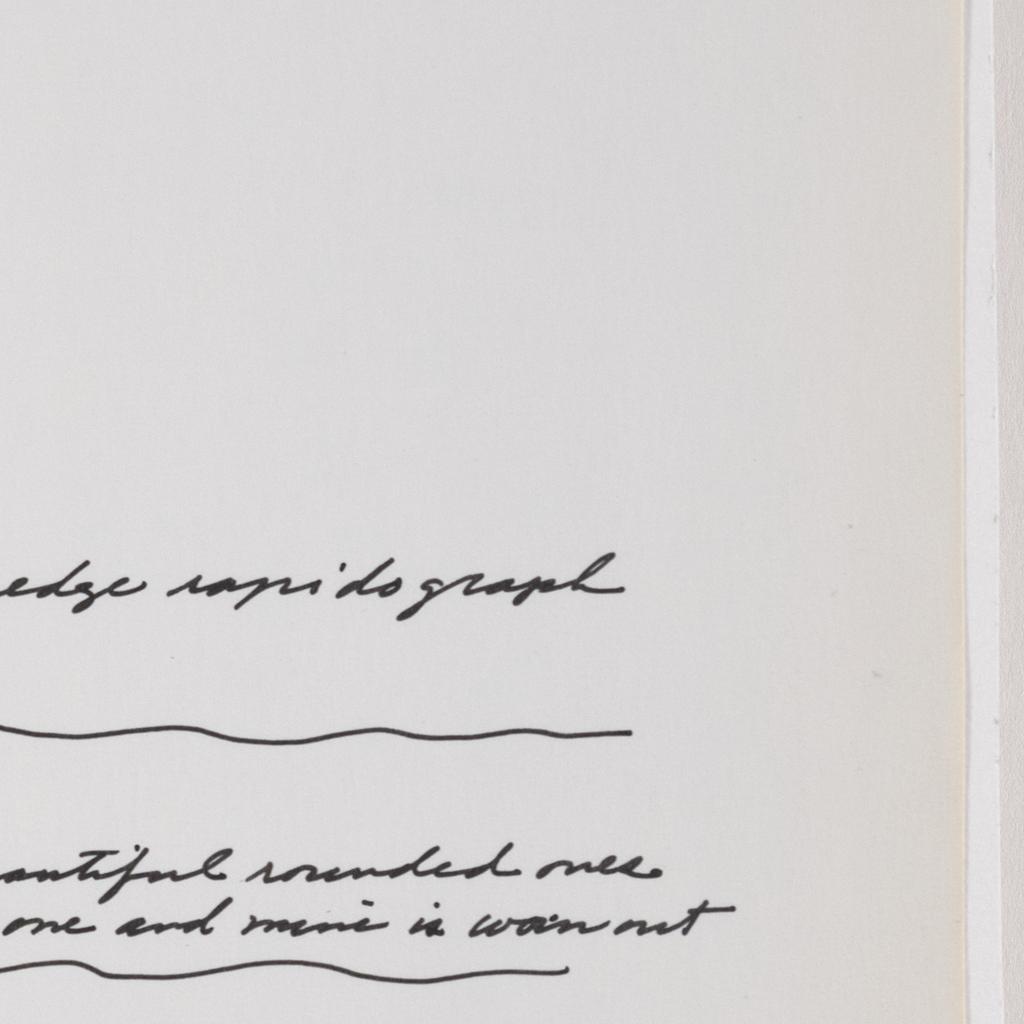 edge rapidograph
autiful rounded ones
one and mine is worn out